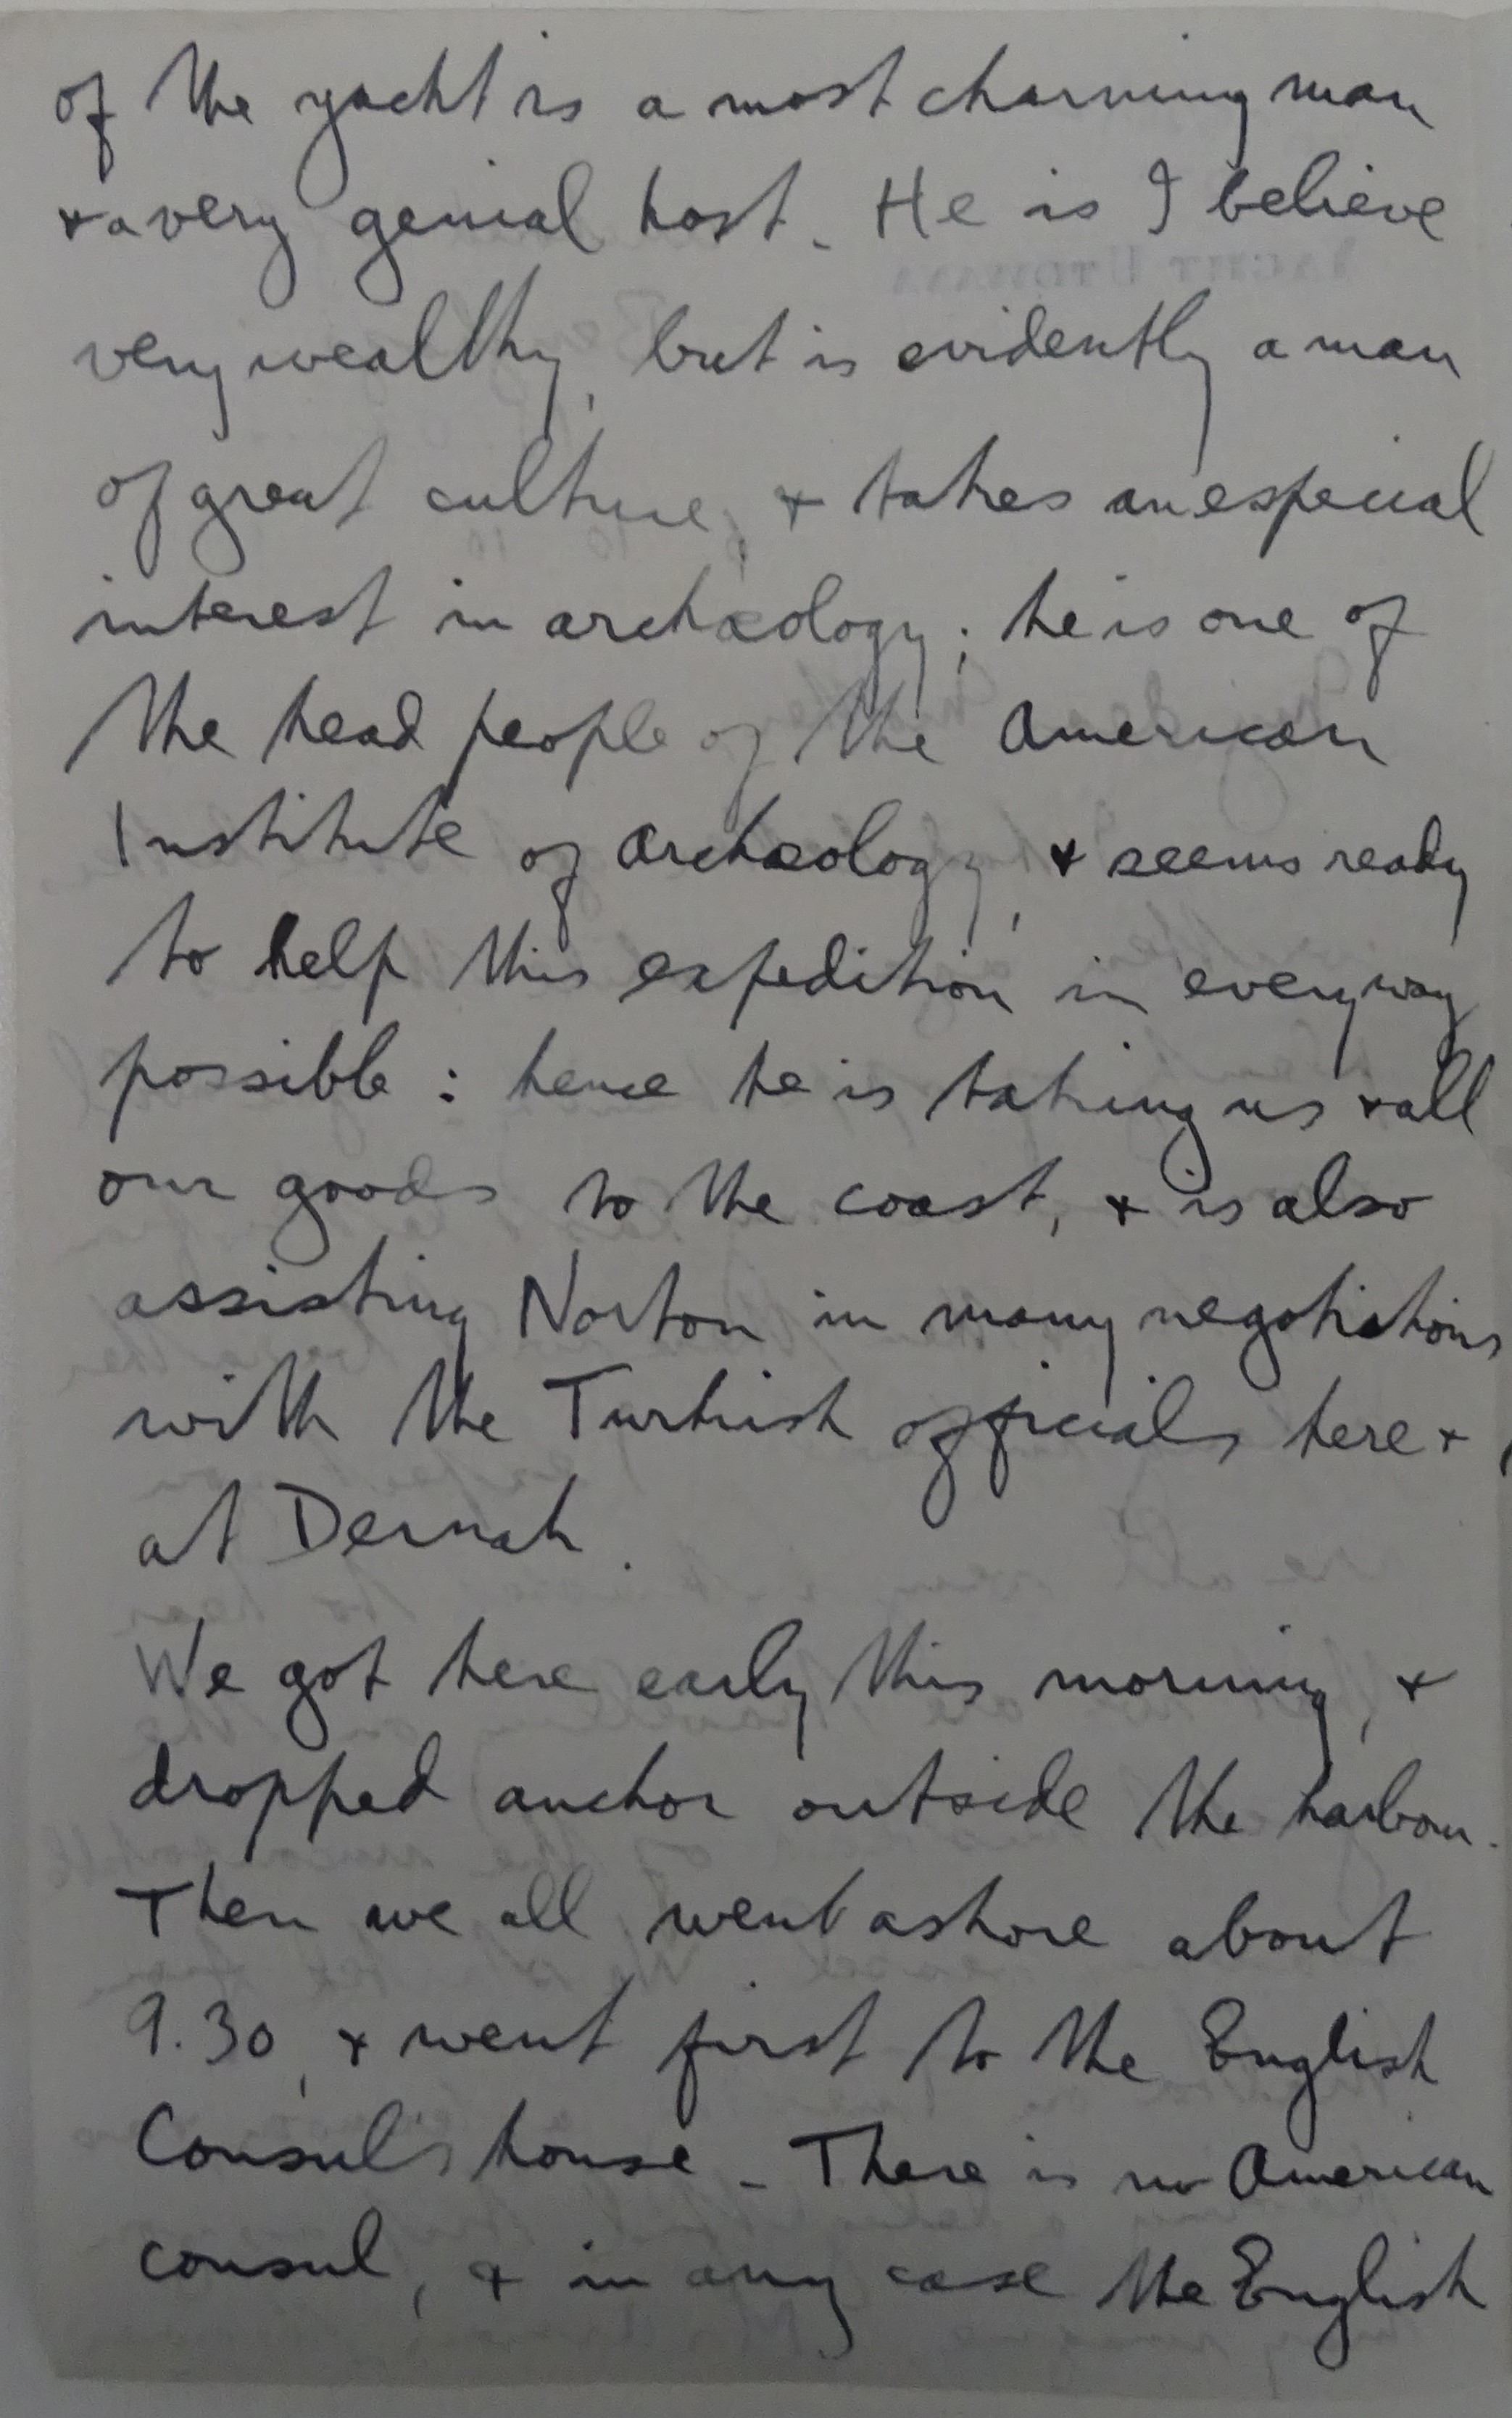 of the yacht is a most charming man
& a very genial host. He is I believe
very wealthy, but is evidently a man
of great culture, & takes an especial
interest in archæology; he is one of
the head people of the American
Institute of Archæology, & seems ready
to help this expedition in every way
possible: hence he is taking us & all
our goods to the coast, & is also
assisting Norton in many negotiations
with the Turkish officials here &
at Dernah.
We got here early this morning, &
dropped anchor outside the harbour.
Then we all went ashore about
9.30, & went first to the English
Consul's house - There is no American
consul, & in any case the English